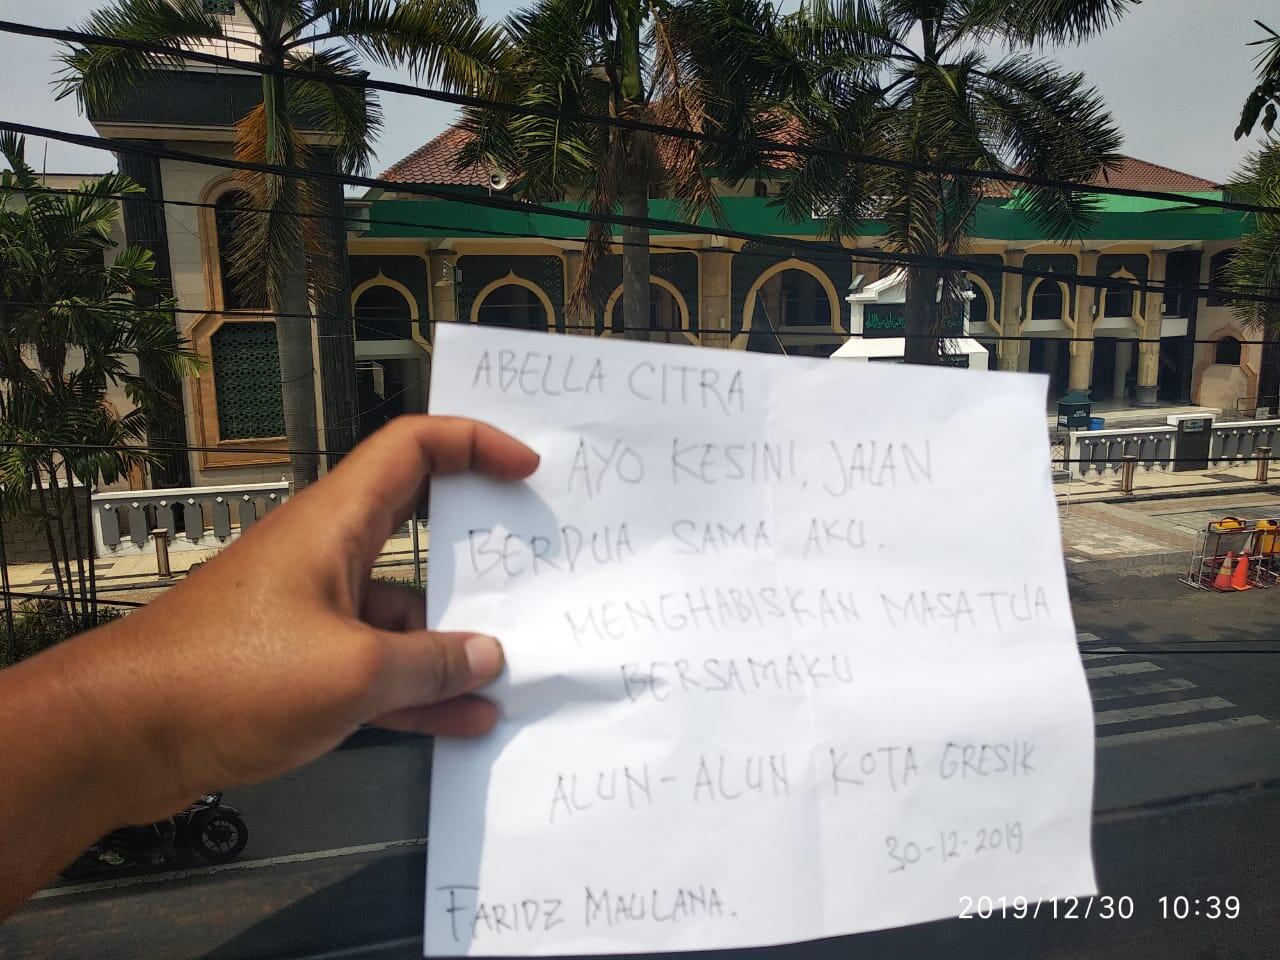 ABELLA CITRA
AYO KESINI, JALAN
BERDUA SAMA AKU.
MENGHABISKAN MASA TUA
BERSAMAKU
ALUN-ALUN KOTA GRESIK
30-12-2019
FARIDZ MAULANA.
2019/12/30 10:39